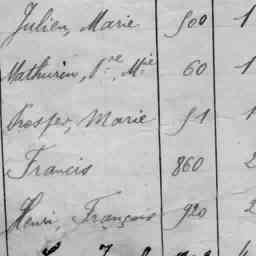 Julien, Marie 500 1
Mathurin, Pre, Mie 60 1
Prosper, Marie 51 1
Francis 860 2
Henri, François 920 2